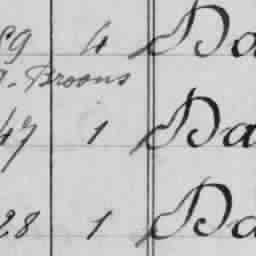 89 4 Da
Broons
47 1 Da
28 1 Da